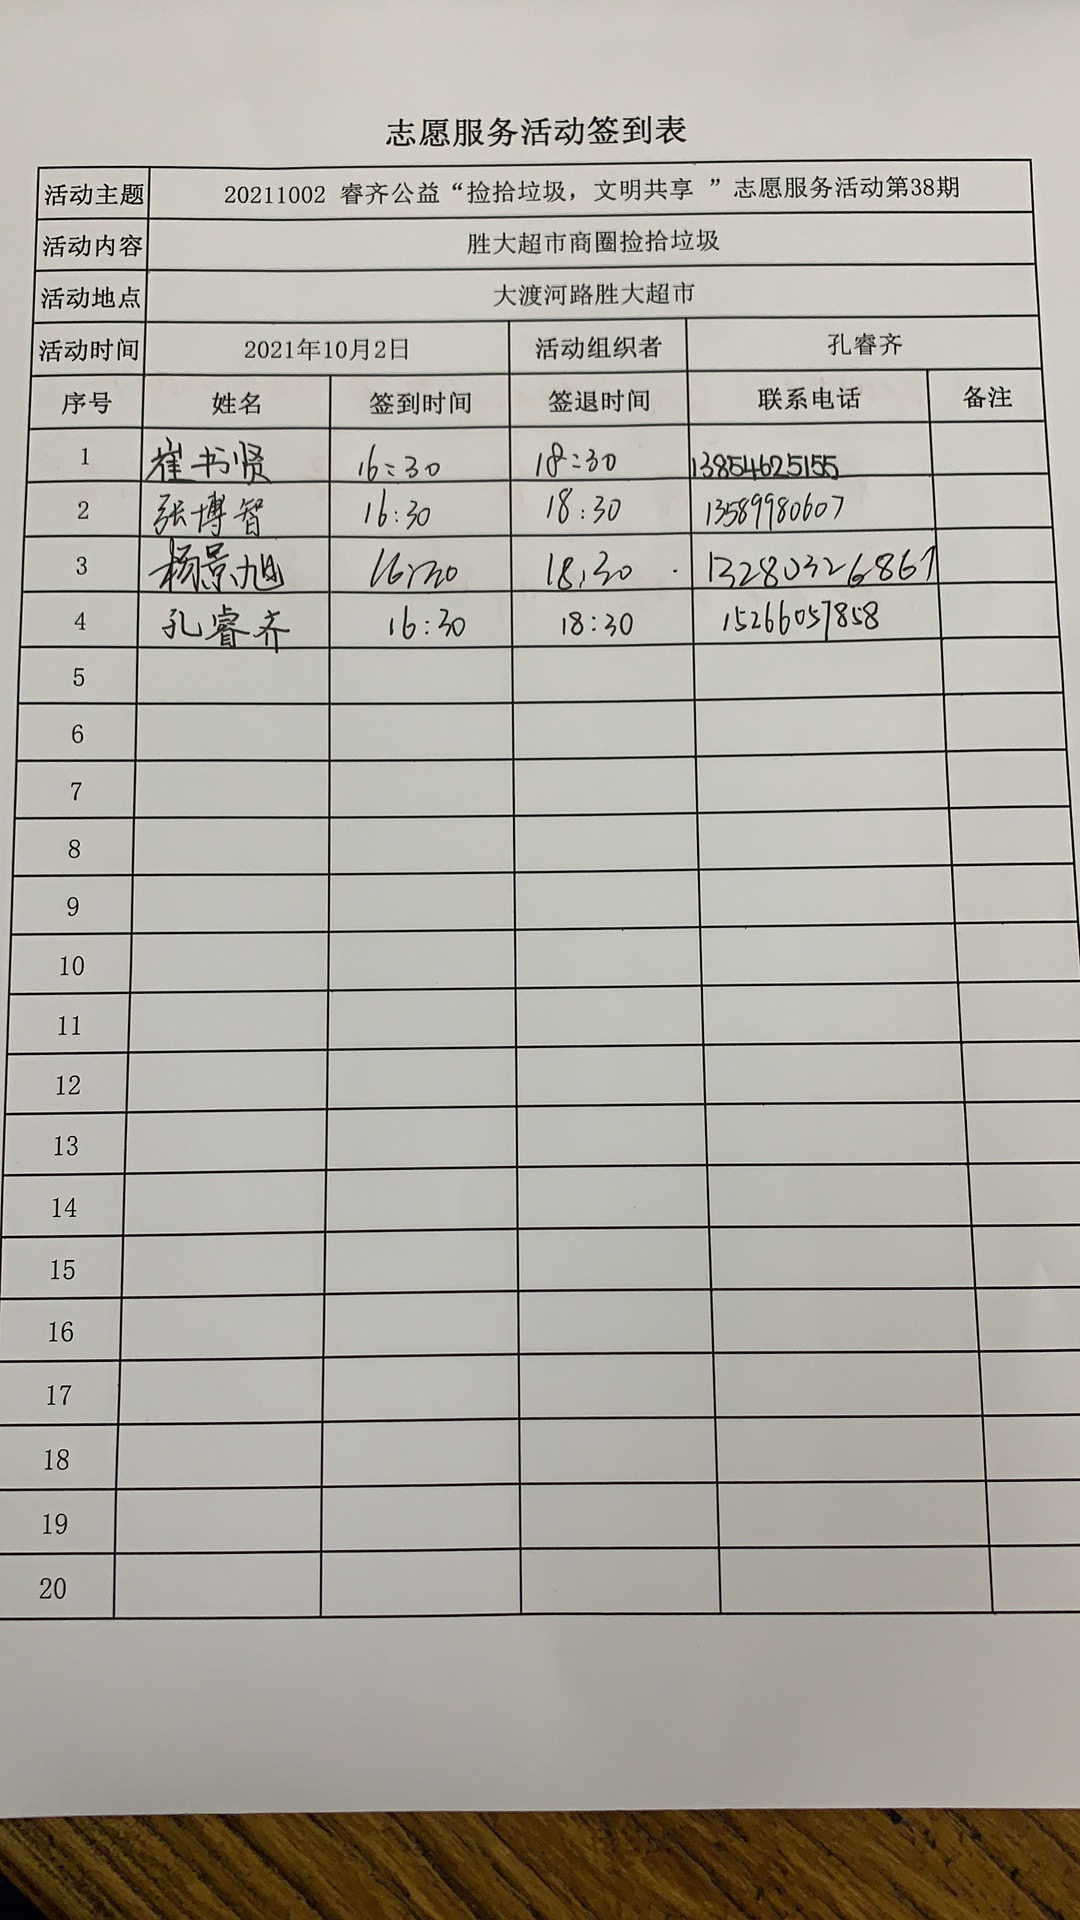 志愿服务活动签到表
活动主题 20211002 睿齐公益“捡拾垃圾，文明共享 ”志愿服务活动第38期
活动内容 胜大超市商圈捡拾垃圾
活动地点 大渡河路胜大超市
活动时间 2021年10月2日 活动组织者 孔睿齐
序号 姓名 签到时间 签退时间 联系电话 备注
1 崔书贤 16:30 18:30 13854625155
2 张博智 16:30 18:30 13589980607
3 杨景旭 16:30 18:30 13280326867
4 孔睿齐 16:30 18:30 15266057858
5
6
7
8
9
10
11
12
13
14
15
16
17
18
19
20